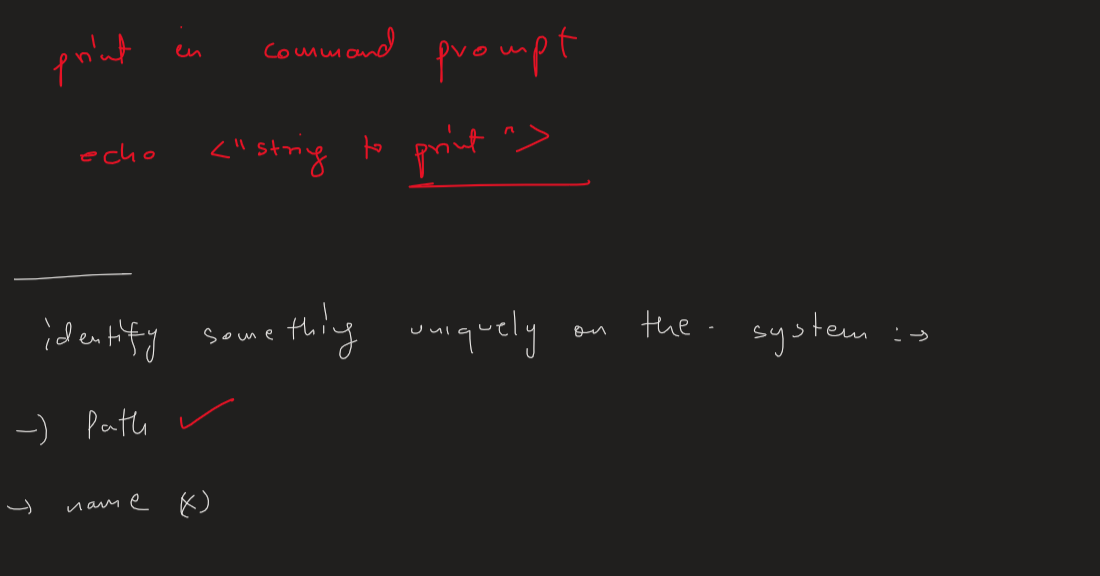 print in command prompt
echo <"string to print">
identify something uniquely on the system :→
→ Path ✓
→ name (x)